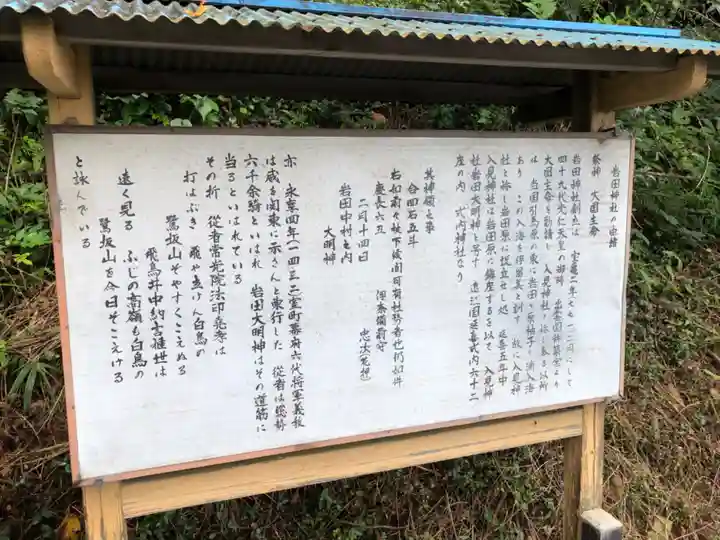 岩田神社の由緒
祭神 大国主命
岩田神社創立は 宝亀二年(七七一)にして
四十九代光仁天皇の御時 出雲国杵築宮より
大国主命を勧請し 入見神社と称し奉る 以所
は 当国引馬原の東に岩田ヶ原
あり この入海を
社と称し岩田原に 延喜五年中
入見神社は岩田原に鎮座するを以て 入見神
社岩田大明神と号す 遠江国延喜式内六十二
座の内 式内神社なり
其神領之事
合四石五斗
右如前々被下置間可有社務者也仍如件
慶長六丑 伊奈備前守
二月十四日 忠次
岩田中村之内
大明神
亦 永享四年(一四三二)室町幕府六代将軍義教
は威を関東に示さんと東行した 従者は総勢
六千余騎といはれ 岩田大明神はその道筋に
当るといはれている
その折 従者常光院法印尭孝は
打はぶき 飛や立けん白鳥の
鷺坂山そやすくこえぬる
飛鳥井中納言雅世は
遠く見る ふじの高嶺も白鳥の
鷺坂山を今日そこえける
と詠んでいる